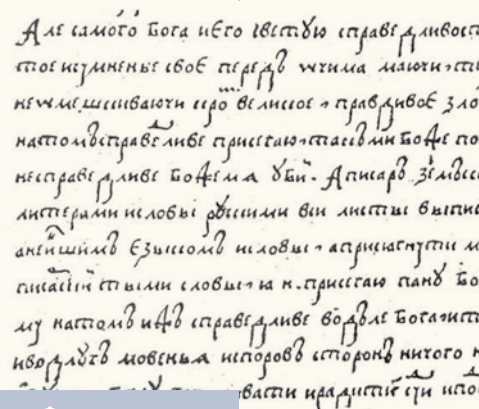 Але самого Бога и Его светую справедливост
тое и сумненье своЕ передъ ѡчима маючи
не ѡмешкиваючи скоро великое правдивоЕ зло
на томъ справедливе присегаю такъ ми Боже по
несправедливе Боже мя Убий. А писаръ земъск
литерами и словы рускими вси листы выпис
анейшимъ Езыкомъ и словы а присегнути м
писаский тыми словы я н. присегаю пану Бо
му на томъ ижъ справедливе водъле Бога ист
и водлугъ мовенья и споровъ сторонъ ничого н